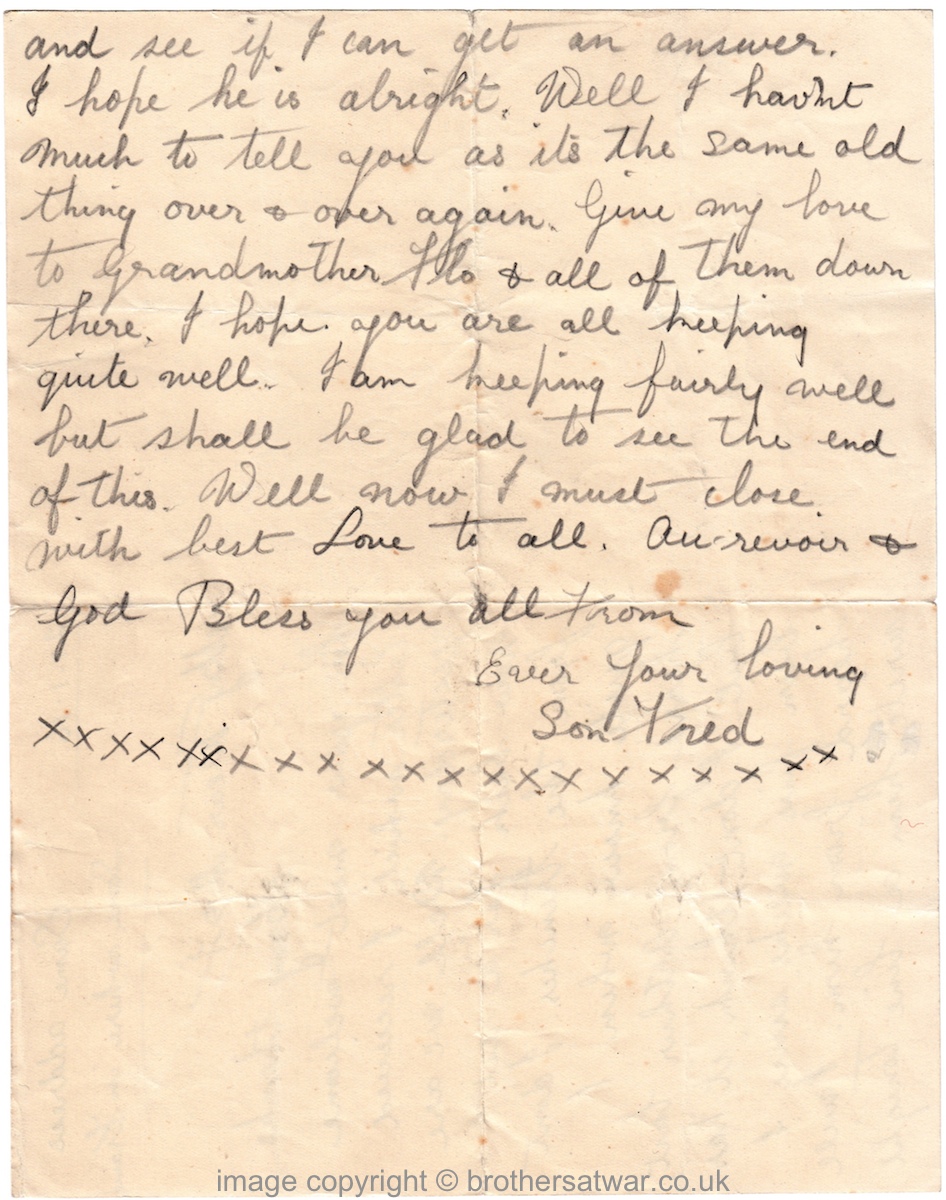 and see if I can get an answer.
I hope he is alright. Well I hav'nt
much to tell you as it's the same old
thing over & over again. Give my love
to Grandmother Flo & all of them down
there. I hope you are all keeping
quite well. I am keeping fairly well
but shall be glad to see the end
of this. Well now I must close
with best Love to all. Au-revoir &
God Bless you all From
Ever Your loving
Son Fred
xxxx xxxxx xxxxxxxxxxxxx
image copyright © brothersatwar.co.uk